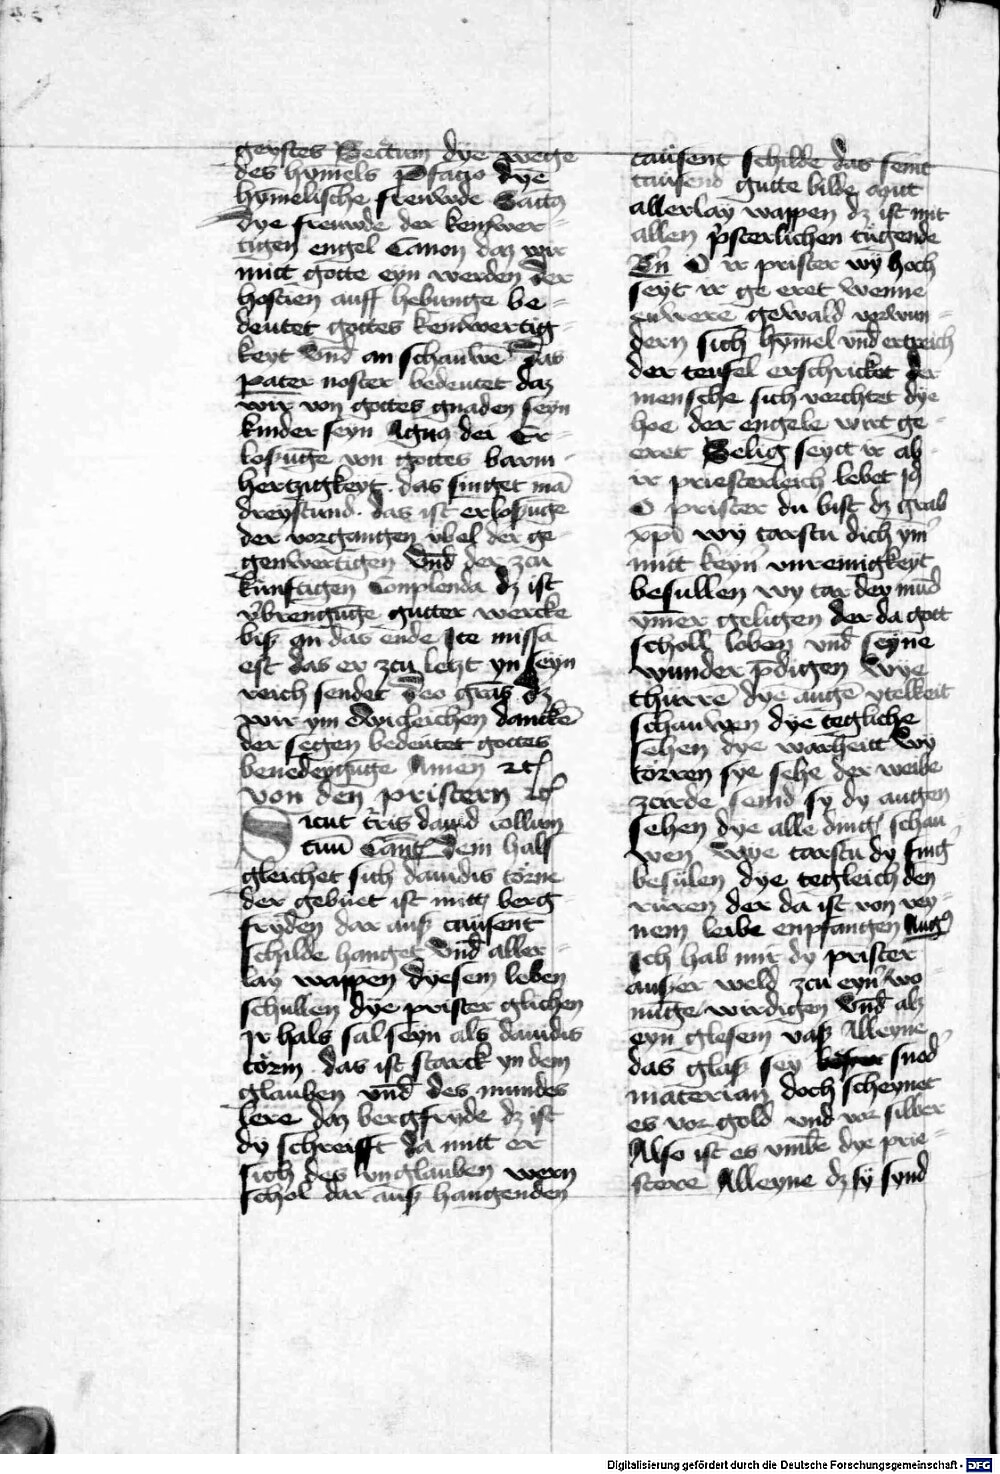 geystes Sectum dye wege
des hymels Pfacio dye
hymelische freuwde Sāctꝰ
dye freuwde der kenwer-
tigen engel Canon daz wir
mitt gotte eyn werden der
hostien auff hebunge be-
deutet gottes kenwertig-
keyt vnd an schauwē Das
pater noster bedeutet daz
wir von gottes gnaden seyn
kinder seyn Agnꝰ dei Er-
losūge von gottes barm-
hertzigkeyt das singet mā
dreystund das ist erlosūge
der vorgangen vbel der ge-
genwertigen vnd der zcu
kunftigen Conplenda dz ist
v̓brengūge gutter wercke
biß an das ende Ite missa
est das er zcu letzt yn seyn
reich sendet Deo grās dz
wir ym ewicleichen danckē
der segen bedeutet gottes
benedeyūge Amen ꝛc
von den pristern ꝛc
Sicut tr̄ris dauid collum
tuū Cāt Dem hals
gleichet sich dauidis törne
der gebuet ist mitt berg
fryden dar auß tausent
schilde hanget vnd aller-
lay wappen dyesem leben
schullen dye prister glichen
Ir hals sal seyn als dauidis
törm das ist starck yn dem
glauben vnd des mundes
lere daz bergfryde dz ist
dy schreifft da mitt er
sich des vnglauben wern
schol dar auß hangenden
tausent schilde das seint
tausend gutte bilde mitt
allerlay wappen dz ist mit
allen p̓sterlichen tugende
Bn̄ O ir prister wy hoch
seyt ir ge eret wenne
euwere gewald vorwun-
dern sich hymel vnd ertreich
der teufel erschricket der
mensche sich vorchtet dye
hoe der engele wirt ge-
eret Selig seytt ir ab
ir priesterleich lebet
O prister du bist dz grab
xp̄i wy tarstu dich ym̓
mitt keyn̓ vnreinigkeyt
besullen wy tar dey mūd
ym̄er geligen der da gott
scholl loben vnd seyne
wunder p̄digen Wye
thurrē dye augē ytelkeit
schauwen dye tegliche
sehen dye warheitt Wy
törren sye sehe der weibe
zcirde seind sy dy augen
sehen dye alle ding schau
wen Wye tarstu dy fing̓
besulen dye tegleich den
ruren der da ist von rey-
nem leibe enpfangen Augꝰ
Ich hab mir dy prister
außer weld zcu eyn̓ wo
nūge wirdigen vnd alz
eyn glesem vaß Alleyne
das glaß sey snod̓
materian doch scheynet
es vor gold vnd vor silber
Also ist es vmbe dye prie-
stere Alleyne dz sy synd
Digitalisierung gefördert durch die Deutsche Forschungsgemeinschaft - DFG